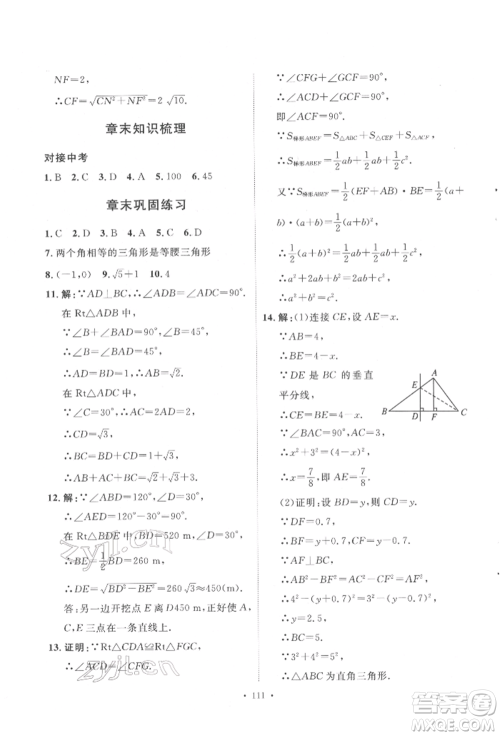 NF=2,
∴CF=√(CN²+NF²)=2√10.
章末知识梳理
对接中考
1.B 2.C 3.D 4.A 5.100 6.45
章末巩固练习
1.C 2.C 3.A 4.C 5.C 6.D
7.两个角相等的三角形是等腰三角形
8.(-1,0) 9.√5+1 10.4
11.解:∵AD⊥BC,∴∠ADB=∠ADC=90°.
在Rt△ADB中,
∵∠B+∠BAD=90°,∠B=45°,
∴∠B=∠BAD=45°.
∴AD=BD=1,AB=√2.
在Rt△ADC中,
∵∠C=30°,∴AC=2AD=2.
∴CD=√3.
∴BC=BD+CD=1+√3.
∴AB+AC+BC=√2+√3+3.
12.解:∵∠ABD=120°,∠D=30°,
∴∠AED=120°-30°=90°.
在Rt△BDE中,
∵BD=520 m,∠D=30°,
∴BE=1/2BD=260 m,
∴DE=√(BD²-BE²)=260√3≈450(m).
答:另一边开挖点E离D450 m,正好使A,
C,E三点在一条直线上.
13.证明:∵Rt△CDA≌Rt△FGC,
∴∠ACD=∠CFG.
∵∠CFG+∠GCF=90°,
∴∠ACD+∠GCF=90°,
即∠ACF=90°.
∵S梯形ABEF=S△ABC+S△CEF+S△ACF,
∴S梯形ABEF=1/2ab+1/2ab+1/2c².
又∵S梯形ABEF=1/2(EF+AB)·BE=1/2(a+
b)·(a+b)=1/2(a+b)²,
∴1/2(a+b)²=1/2ab+1/2ab+1/2c².
∴a²+b²=c².
14.解:(1)连接CE,设AE=x.
∵AB=4,
∴BE=4-x.
∵DE是BC的垂直
平分线,
∴CE=BE=4-x.
∴x²+3²=(4-x)².
∴x=7/8,即AE=7/8.
(2)证明:设BD=y,
∵DF=0.7,
∴BF=y+0.7,CF=y-0.7.
∵AF⊥BC,
∴AB²-BF²=AC²-CF².
∴4²-(y+0.7)²=3²-(y-0.7)².
∴y=2.5,
∴BC=2y=5,
∴AB²+AC²=BC².
∴△ABC为直角三角形.
A
E
B
D
F
C
· 111 ·
zyjl.cn
zyjl.cn